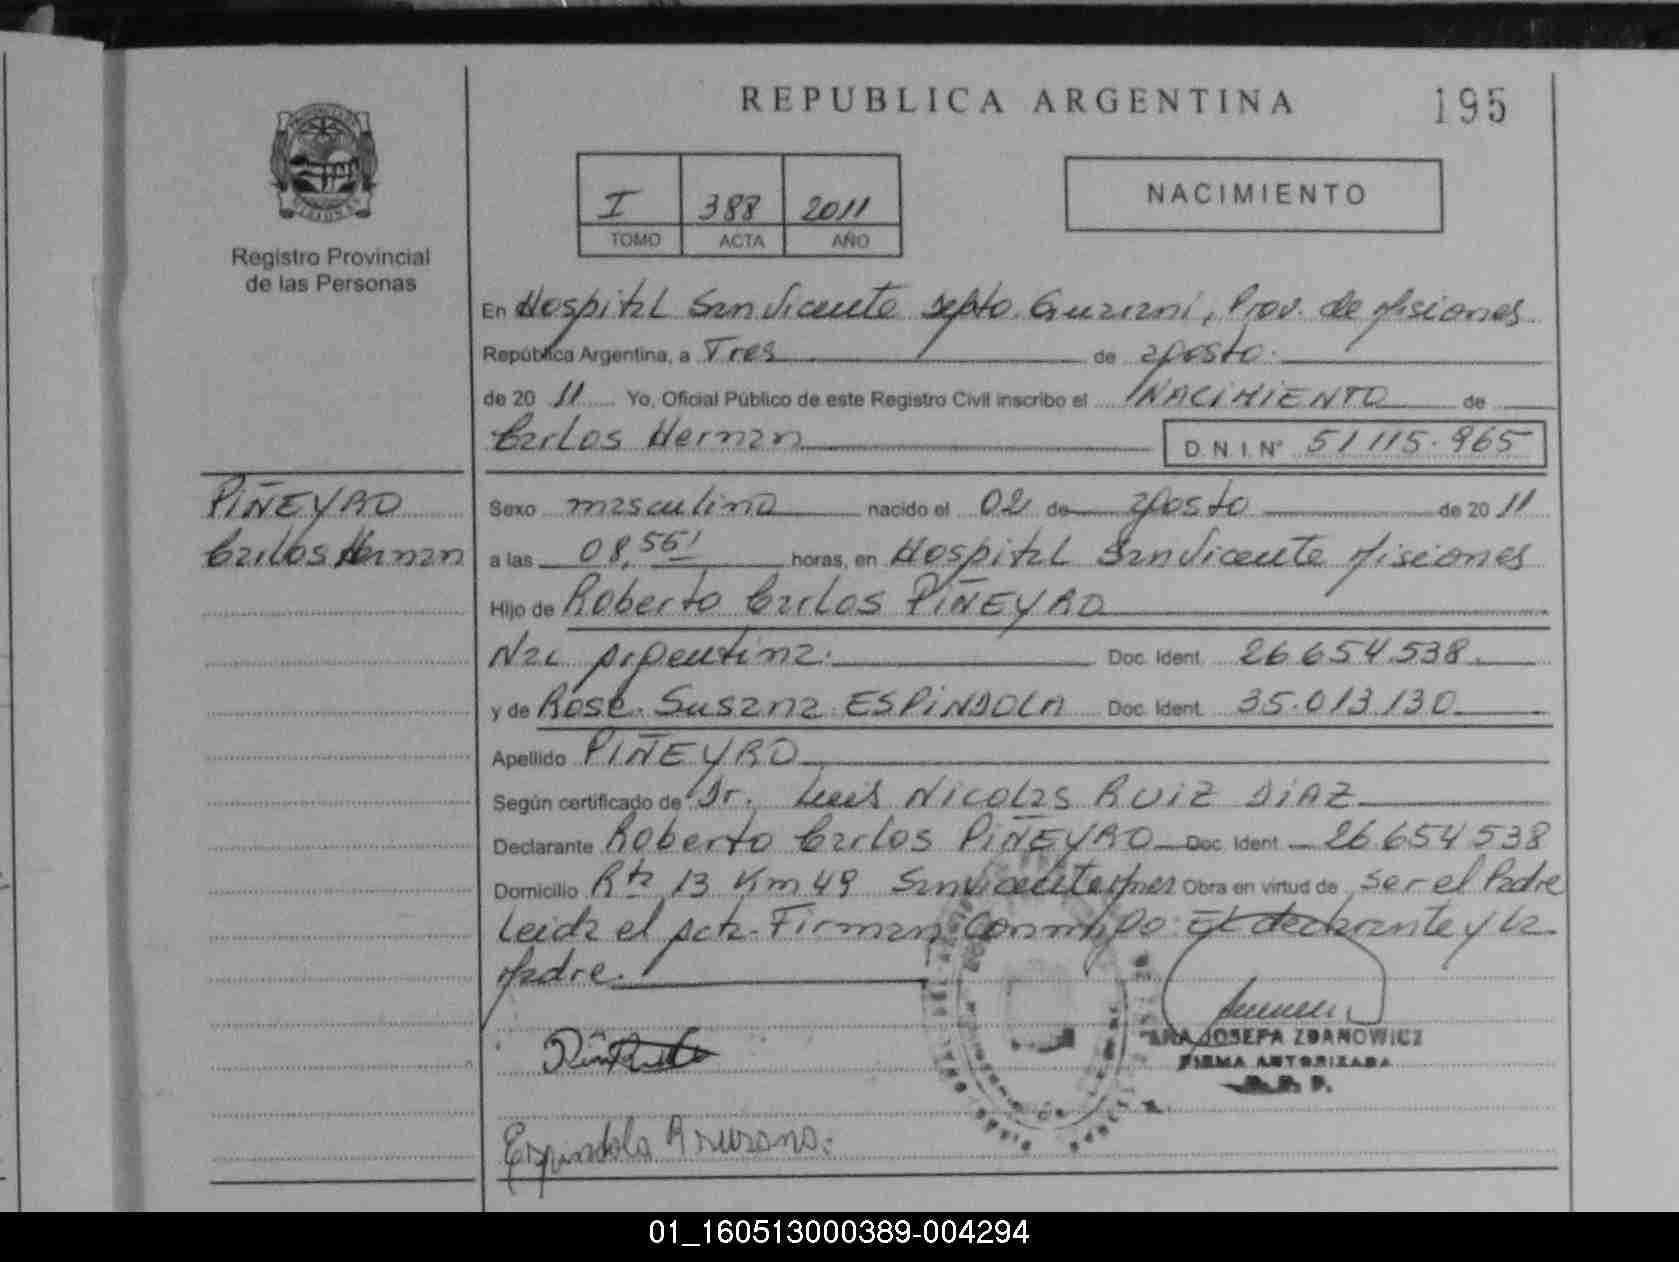 REPUBLICA ARGENTINA
195
Registro Provincial
de las Personas
I 388 2011
TOMO ACTA AÑO
NACIMIENTO
En Hospital San Vicente Depto. Guarani, Prov. de Misiones
República Argentina, a Tres de agosto.
de 20 11 Yo, Oficial Público de este Registro Civil inscribo el NACIMIENTO de
Carlos Hernan D.N.I. N° 51115.965
PIÑEYRO
Carlos Hernan
Sexo masculino nacido el 02 de agosto de 20 11
a las 08,56' horas, en Hospital San Vicente Misiones
Hijo de Roberto Carlos PIÑEYRO
Nac Argentina. Doc. Ident. 26.654.538
y de Rosa Susana ESPINDOLA Doc. Ident. 35.013.130
Apellido PIÑEYRO
Según certificado de Dr. Luis Nicolas RUIZ DIAZ
Declarante Roberto Carlos PIÑEYRO Doc. Ident. 26.654538
Domicilio Rta 13 Km 49 San Vicente Mnes Obra en virtud de ser el Padre
Leida el Acta. Firman conmigo: El declarante y la
Madre.
ANA JOSEFA ZDANOWICZ
FIRMA AUTORIZADA
R. P. P.
Espindola R Susana.
01_160513000389-004294